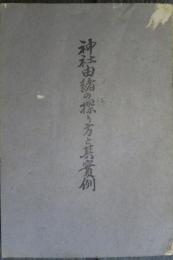 神社由緒の探り方と其實例